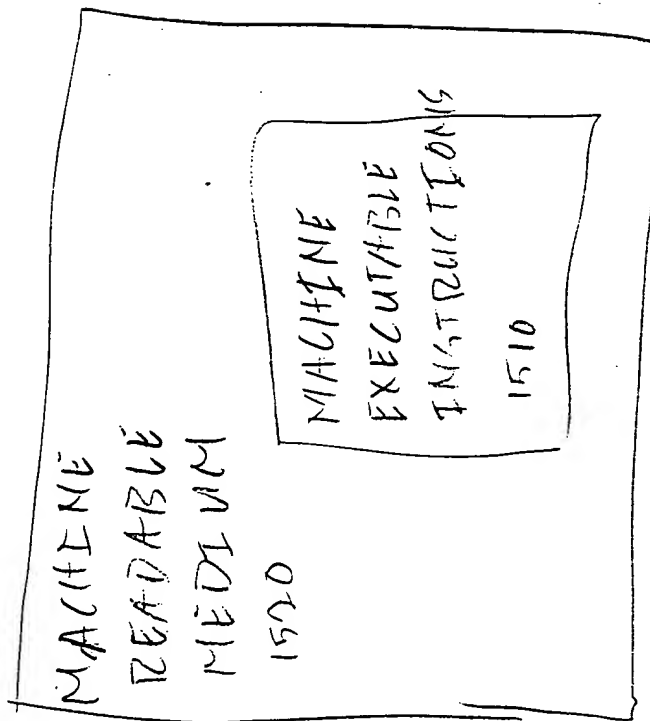 MACHINE
READABLE
MEDIUM
1520
MACHINE
EXECUTABLE
INSTRUCTIONS
1510